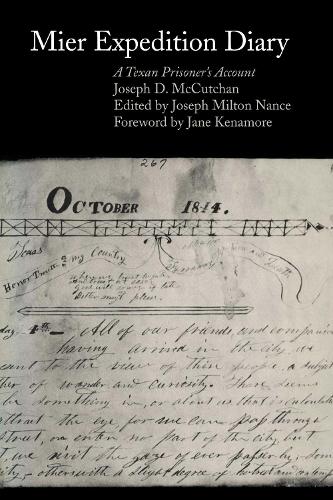 Mier Expedition Diary
A Texan Prisoner's Account
Joseph D. McCutchan
Edited by Joseph Milton Nance
Foreword by Jane Kenamore
267
OCTOBER 1844.
Texas
Honor Truth & my Country
Tyranny
day. 4th— All of our friends, and companio
having arrived in the city, we
cant to the view of these people, a subject
ther of wonder and curiosity. There seems
be something in, or about us that is calculated
attract the eye, for we can pass through
street, or enter no part of the city, but
t, we invit the gaze of ever passer by, dom
ity, others with a slight degree of